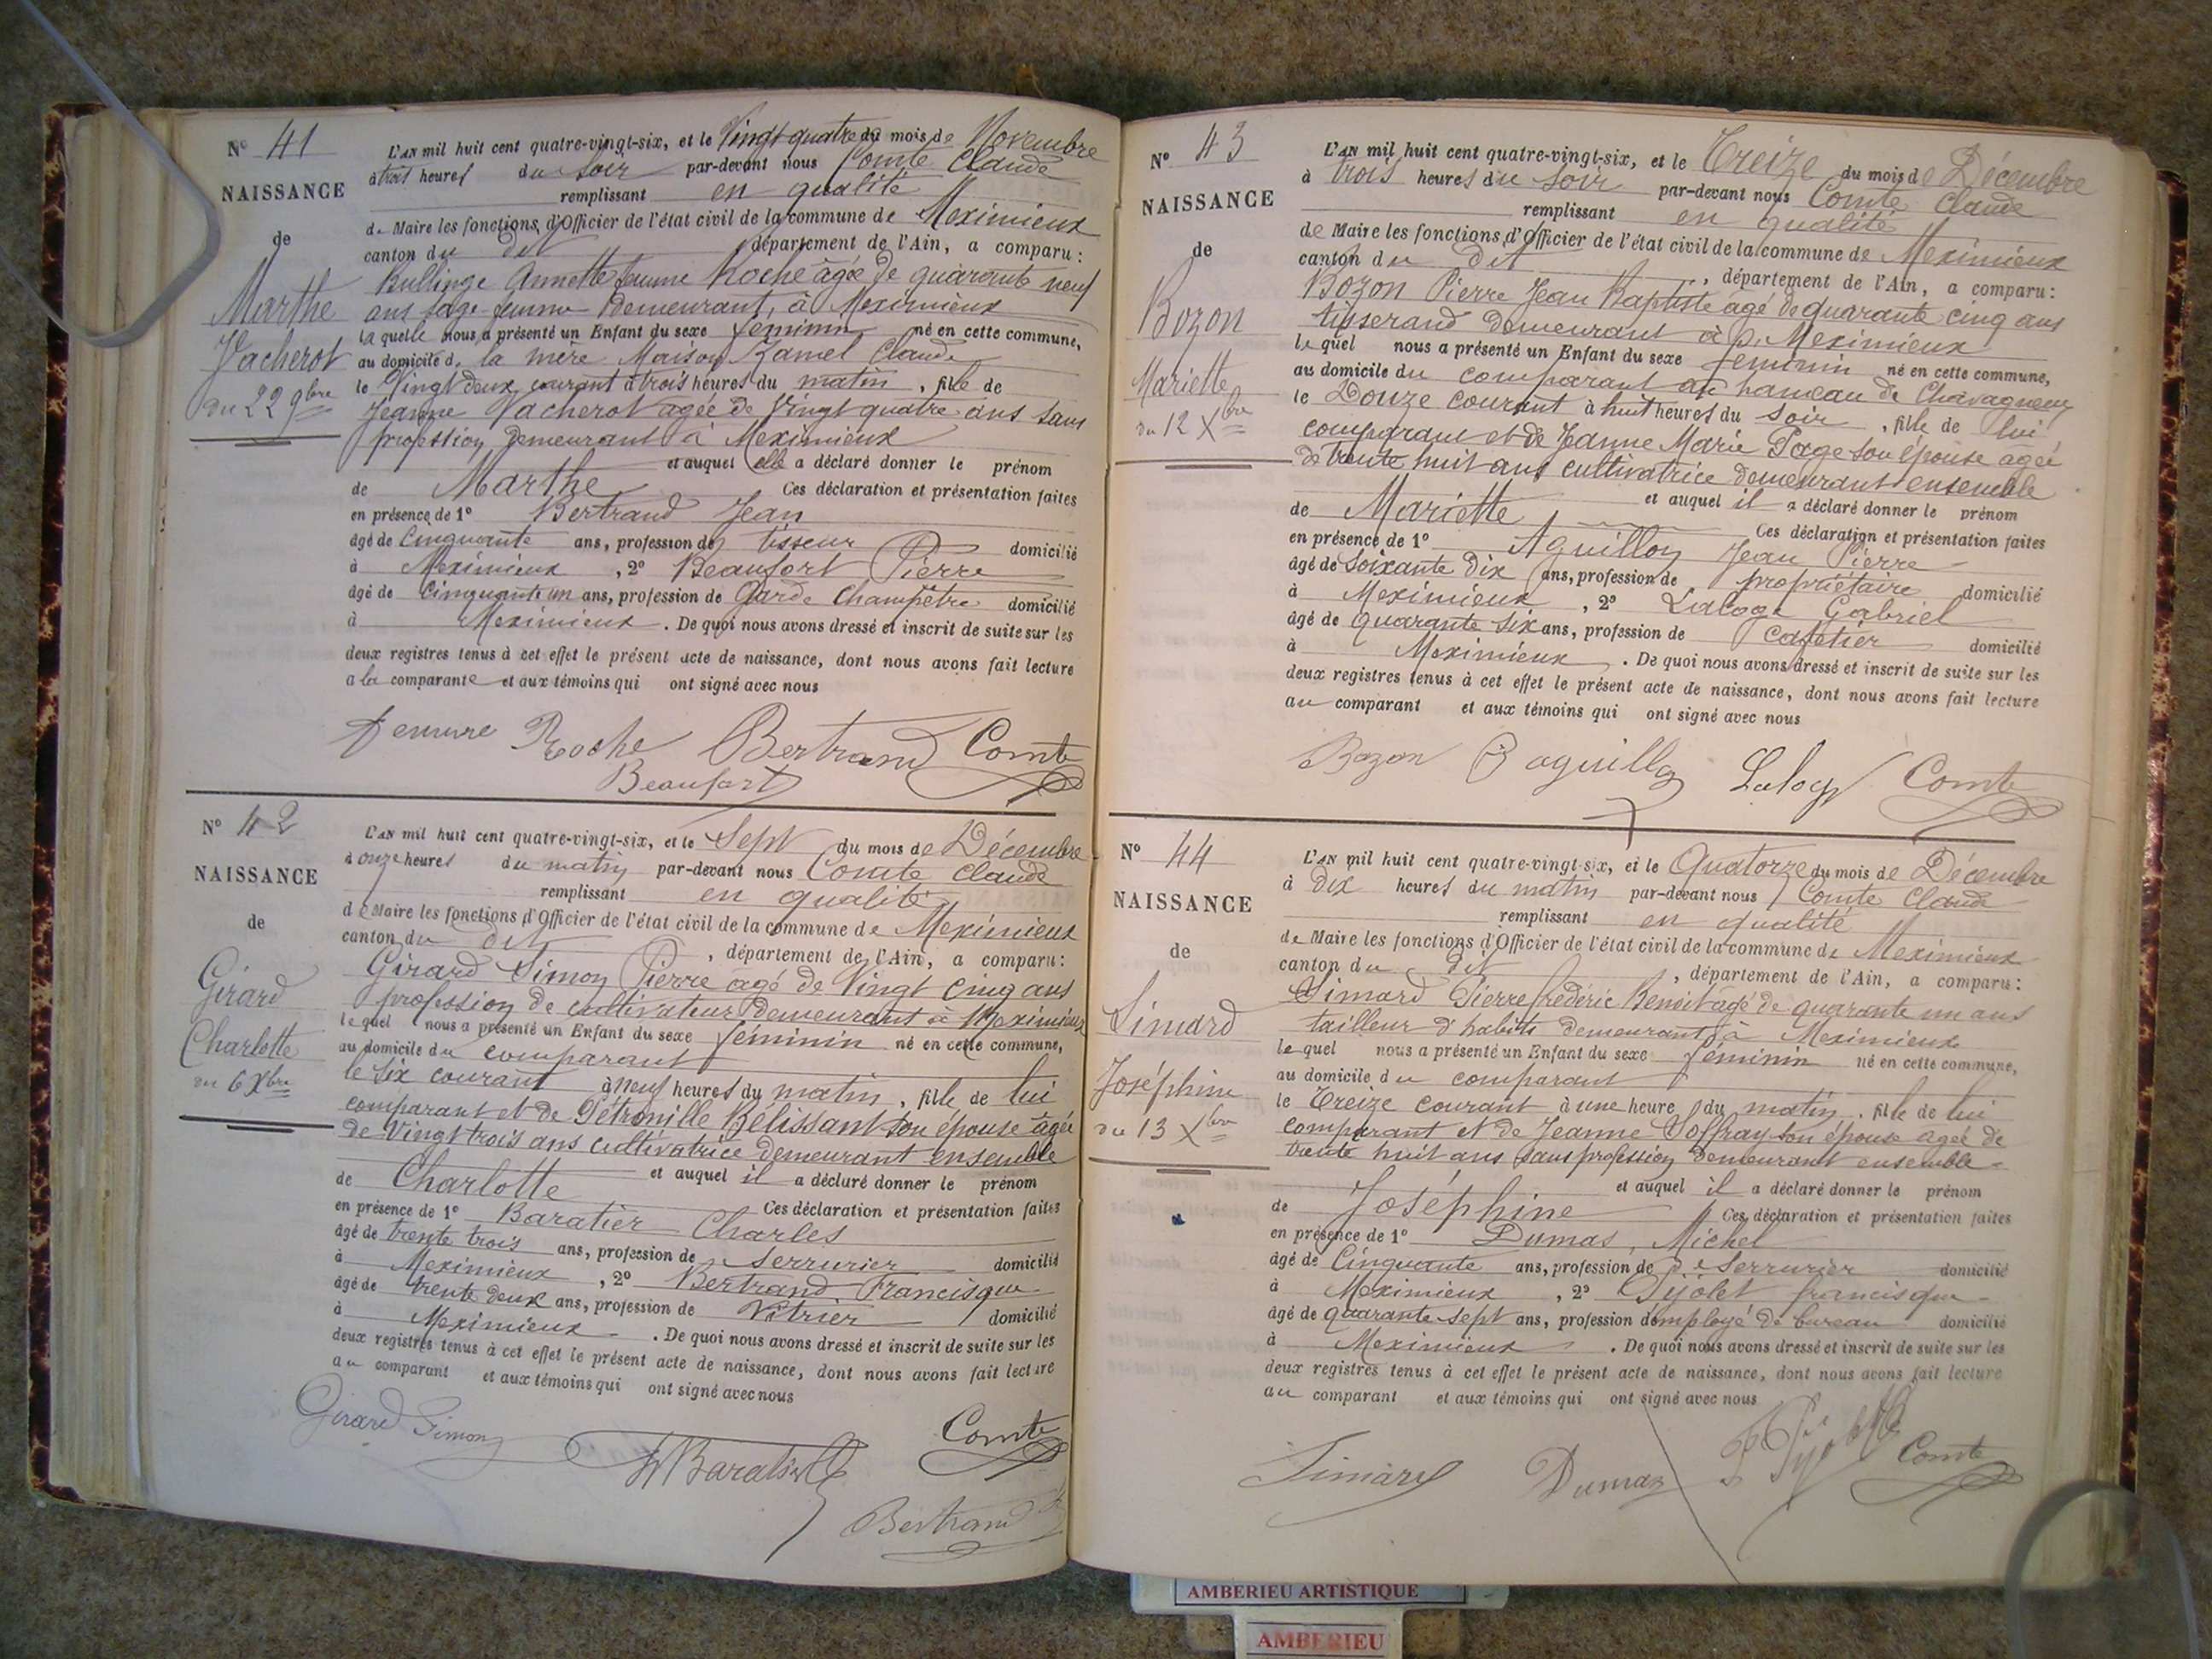 N° 41
NAISSANCE
de
Marthe
Vacherot
du 22 9bre
L'AN mil huit cent quatre-vingt-six, et le Vingt quatre du mois de Novembre
à trois heures du soir par-devant nous Comte Claude
remplissant en qualité
de Maire les fonctions d'Officier de l'état civil de la commune de Meximieux
canton du dit département de l'Ain, a comparu :
Bullinge Annette femme Roche âgée de quarante neuf
ans sage femme demeurant à Meximieux
laquelle nous a présenté un Enfant du sexe féminin né en cette commune,
au domicile de la mère Maison Ramel Claude
le Vingt deux courant à trois heures du matin, fille de
Jeanne Vacherot agée de Vingt quatre ans sans
profession demeurant à Meximieux
et auquel elle a déclaré donner le prénom
de Marthe Ces déclaration et présentation faites
en présence de 1° Bertrand Jean
âgé de Cinquante ans, profession de tisseur domicilié
à Meximieux, 2° Beaufort Pierre
âgé de Cinquante un ans, profession de Garde Champêtre domicilié
à Meximieux. De quoi nous avons dressé et inscrit de suite sur les
deux registres tenus à cet effet le présent acte de naissance, dont nous avons fait lecture
a la comparante et aux témoins qui ont signé avec nous
femme Roche Bertrand Comte
Beaufort
N° 42
NAISSANCE
de
Girard
Charlotte
du 6 Xbre
L'AN mil huit cent quatre-vingt-six, et le Sept du mois de Décembre
à onze heures du matin par-devant nous Comte Claude
remplissant en qualité
de Maire les fonctions d'Officier de l'état civil de la commune de Meximieux
canton du dit, département de l'Ain, a comparu :
Girard Simon Pierre agé de Vingt cinq ans
profession de cultivateur demeurant à Meximieux
lequel nous a présenté un Enfant du sexe féminin né en cette commune,
au domicile du comparant
le six courant à neuf heures du matin, fille de lui
comparant et de Pétronille Bélissant son épouse agée
de Vingt trois ans cultivatrice demeurant ensemble
et auquel il a déclaré donner le prénom
de Charlotte Ces déclaration et présentation faites
en présence de 1° Baratier Charles
âgé de trente trois ans, profession de serrurier domicilié
à Meximieux, 2° Bertrand Francisque
âgé de trente deux ans, profession de Vitrier domicilié
à Meximieux. De quoi nous avons dressé et inscrit de suite sur les
deux registres tenus à cet effet le présent acte de naissance, dont nous avons fait lecture
au comparant et aux témoins qui ont signé avec nous
Girard Simon Comte
Baratier
Bertrand
N° 43
NAISSANCE
de
Bozon
Mariette
du 12 Xbre
L'AN mil huit cent quatre-vingt-six, et le Treize du mois de Décembre
à trois heures du soir par-devant nous Comte Claude
remplissant en qualité
de Maire les fonctions d'Officier de l'état civil de la commune de Meximieux
canton du dit, département de l'Ain, a comparu :
Bozon Pierre Jean Baptiste agé de quarante cinq ans
tisserand demeurant à Meximieux
lequel nous a présenté un Enfant du sexe féminin né en cette commune,
au domicile du comparant au hameau de Chavagneux
le Douze courant à huit heures du soir, fille de lui
comparant et de Jeanne Marie Page son épouse agée
de trente huit ans cultivatrice demeurant ensemble
et auquel il a déclaré donner le prénom
de Mariette Ces déclaration et présentation faites
en présence de 1° Aguillon Jean Pierre
âgé de soixante dix ans, profession de propriétaire domicilié
à Meximieux, 2° Laloge Gabriel
âgé de quarante six ans, profession de cafetier domicilié
à Meximieux. De quoi nous avons dressé et inscrit de suite sur les
deux registres tenus à cet effet le présent acte de naissance, dont nous avons fait lecture
au comparant et aux témoins qui ont signé avec nous
Bozon Comte
N° 44
NAISSANCE
de
Simard
Joséphine
du 13 Xbre
L'AN mil huit cent quatre-vingt-six, et le Quatorze du mois de Décembre
à dix heures du matin par-devant nous Comte Claude
remplissant en qualité
de Maire les fonctions d'Officier de l'état civil de la commune de Meximieux
canton du dit, département de l'Ain, a comparu :
Simard Pierre frédéric Benoit agé de quarante un ans
tailleur d'habits demeurant à Meximieux
lequel nous a présenté un Enfant du sexe féminin né en cette commune,
au domicile du comparant
le Treize courant à une heure du matin, fille de lui
comparant et de Jeanne Soffray son épouse agée de
trente huit ans sans profession demeurant ensemble
et auquel il a déclaré donner le prénom
de Joséphine Ces déclaration et présentation faites
en présence de 1° Dumas, Michel
âgé de Cinquante ans, profession de serrurier domicilié
à Meximieux, 2° Pijolet francisque
âgé de quarante sept ans, profession d'employé de bureau domicilié
à Meximieux. De quoi nous avons dressé et inscrit de suite sur les
deux registres tenus à cet effet le présent acte de naissance, dont nous avons fait lecture
au comparant et aux témoins qui ont signé avec nous
Simard Dumas F Pijolet Comte
AMBERIEU ARTISTIQUE
AMBERIEU